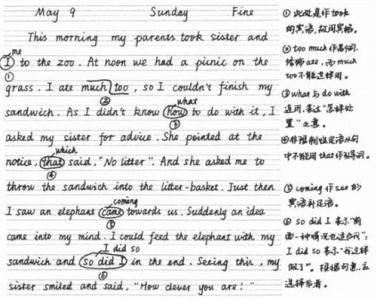 May 9 Sunday Fine
This morning my parents took sister and
me
I to the zoo. At noon we had a picnic on the
①
grass. I ate much too, so I couldn't finish my
②
what
sandwich. As I didn't know how to do with it, I
③
asked my sister for advice. She pointed at the
which
notice, that said, "No litter". And she asked me to
④
throw the sandwich into the litter-basket. Just then
coming
I saw an elephant came towards us. Suddenly an idea
⑤
came into my mind. I could feed the elephant with my
I did so
sandwich and so did I in the end. Seeing this, my
⑥
sister smiled and said, "How clever you are!"
①此处是作took
的宾语,故用宾格。
②too much作名词,
修饰ate,而much
too不能这样用。
③what与do with
连用,表达"怎样处
置"之意。
④非限制性定语从句
中不能用that作引导词。
⑤coming作see的
宾语补足语。
⑥so did I表示"前
面一种情况也适合我",
I did so表示"我这样
做了"。根据句意,应
选择后者。